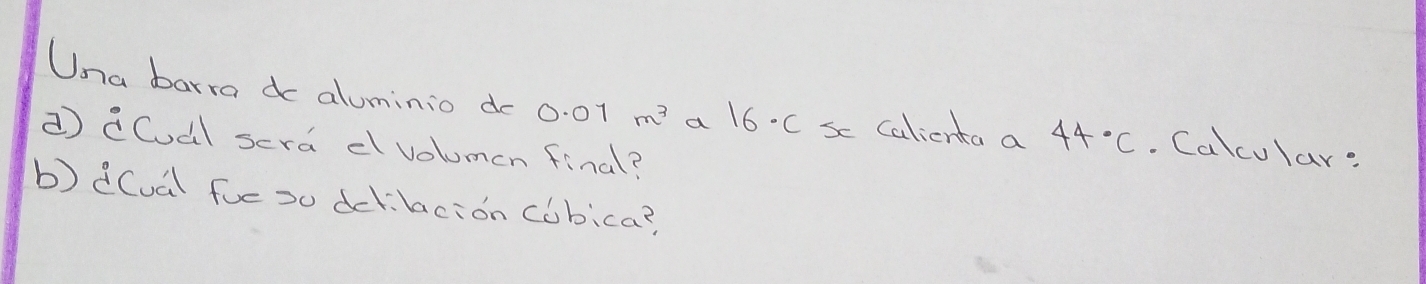 Una barra de aluminio de 0.01 m³ a 16 °C se calienta a 44 °C. Calcular:
a) ¿Cuál será el volumen final?
b) ¿Cuál fue su detilación cúbica?